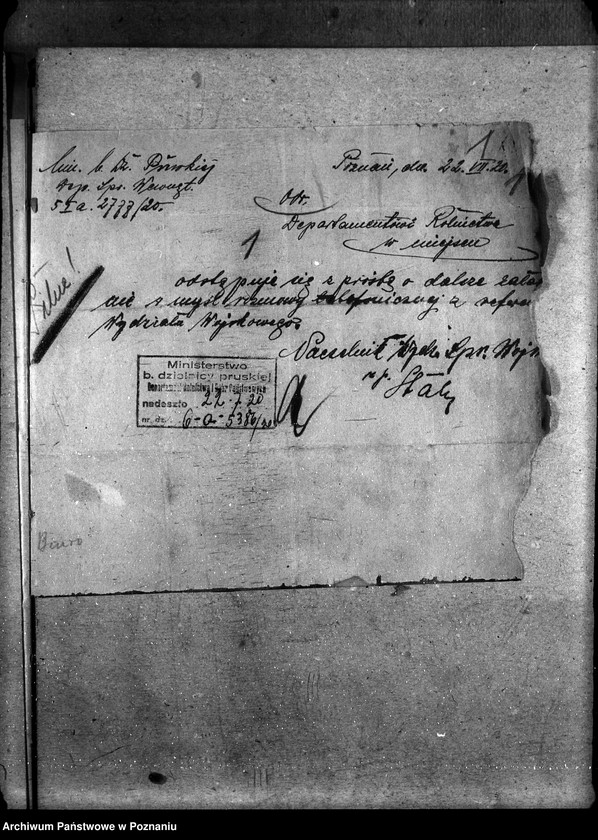 Min. b. Dz. Pruskiej
Dep. Spr. Wewnęt.
5 I a. 2777/20.
Poznań, dn. 22. VII. 20.
1
Do
Departamentu Rolnictwa
w miejscu
1
Pilne!
odstępuje się z prośbą o dalsze zała
nie w myśl rozmowy telefonicznej z refere
Wydziału Wojskowego
Naczelnik Wydz. Spr. Wojsk
w z.
Ministerstwo
b. dzielnicy pruskiej
Departament Rolnictwa i Dóbr Państwowych
nadeszło 22-7 20
nr. dz. 6-a-5386/20
Biuro
Archiwum Państwowe w Poznaniu